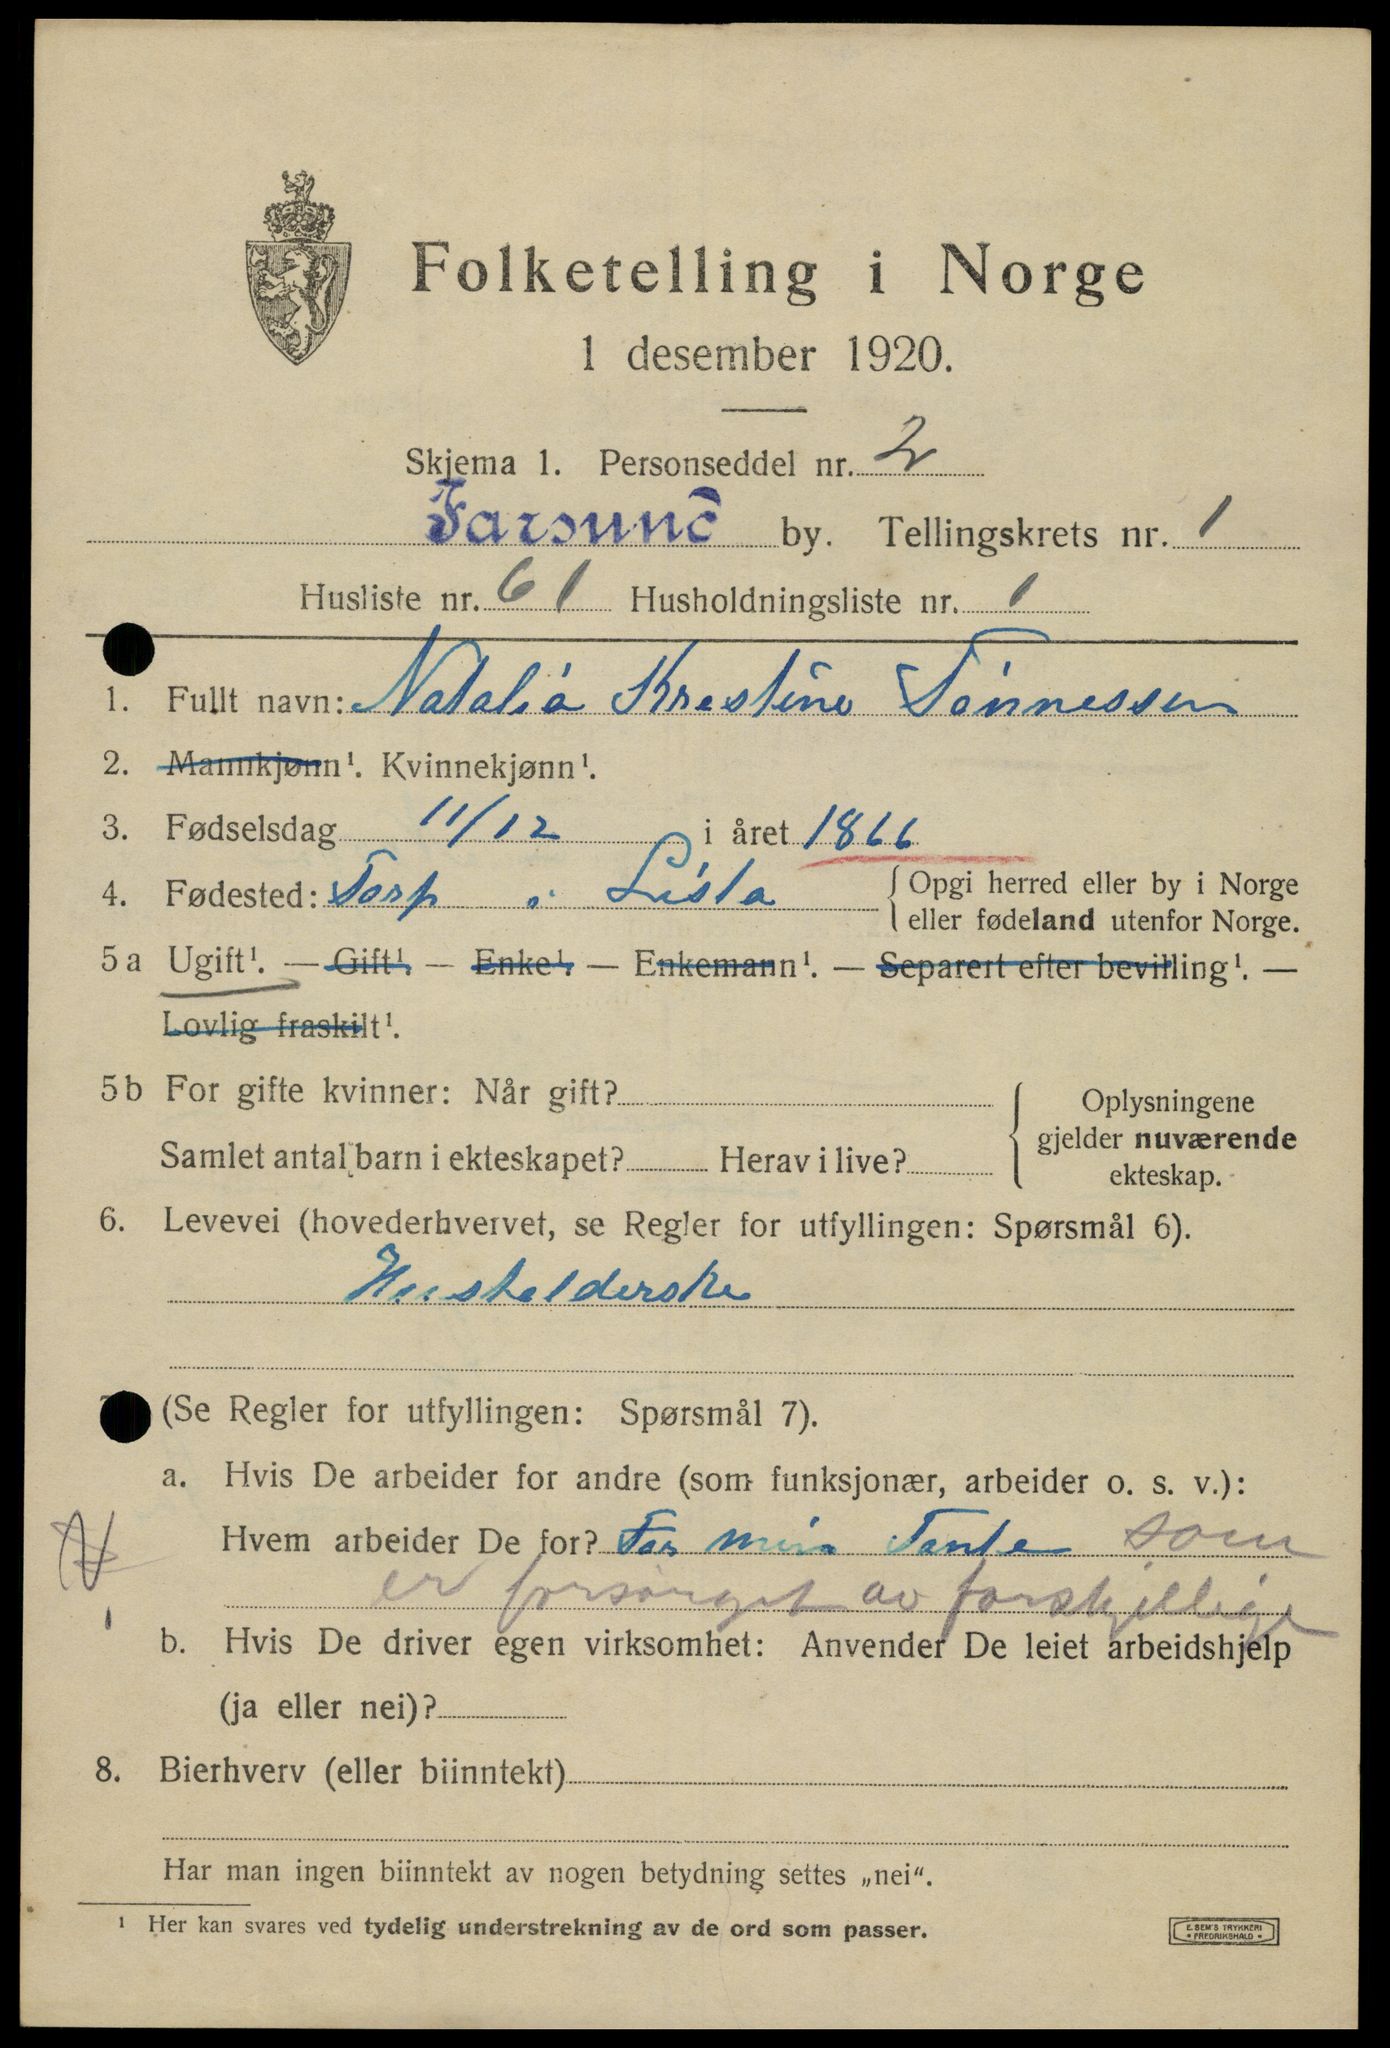 Folketelling i Norge
1 desember 1920.
Skjema 1. Personseddel nr. 2
Farsund by. Tellingskrets nr. 1
Husliste nr. 61 Husholdningsliste nr. 1
1. Fullt navn: Natalia Krestine Tønnessen
2. Mannkjønn¹. Kvinnekjønn¹.
3. Fødselsdag 11/12 i året 1866
4. Fødested: Torp i Lista { Opgi herred eller by i Norge
eller fødeland utenfor Norge.
5a Ugift¹. — Gift¹. — Enke¹. — Enkemann¹. — Separert efter bevilling¹. —
Lovlig fraskilt¹.
5b For gifte kvinner: Når gift?
Samlet antal barn i ekteskapet? Herav i live?
{ Oplysningene
gjelder nuværende
ekteskap.
6. Levevei (hovederhvervet, se Regler for utfyllingen: Spørsmål 6).
Husholderske
(Se Regler for utfyllingen: Spørsmål 7).
a. Hvis De arbeider for andre (som funksjonær, arbeider o. s. v.):
Hvem arbeider De for? For min Tante som
er forsørget av forskjellige
b. Hvis De driver egen virksomhet: Anvender De leiet arbeidshjelp
(ja eller nei)?
8. Bierhverv (eller biinntekt)
Har man ingen biinntekt av nogen betydning settes „nei“.
¹ Her kan svares ved tydelig understrekning av de ord som passer.
E. SEM'S TRYKKERI
• FREDRIKSHALD •